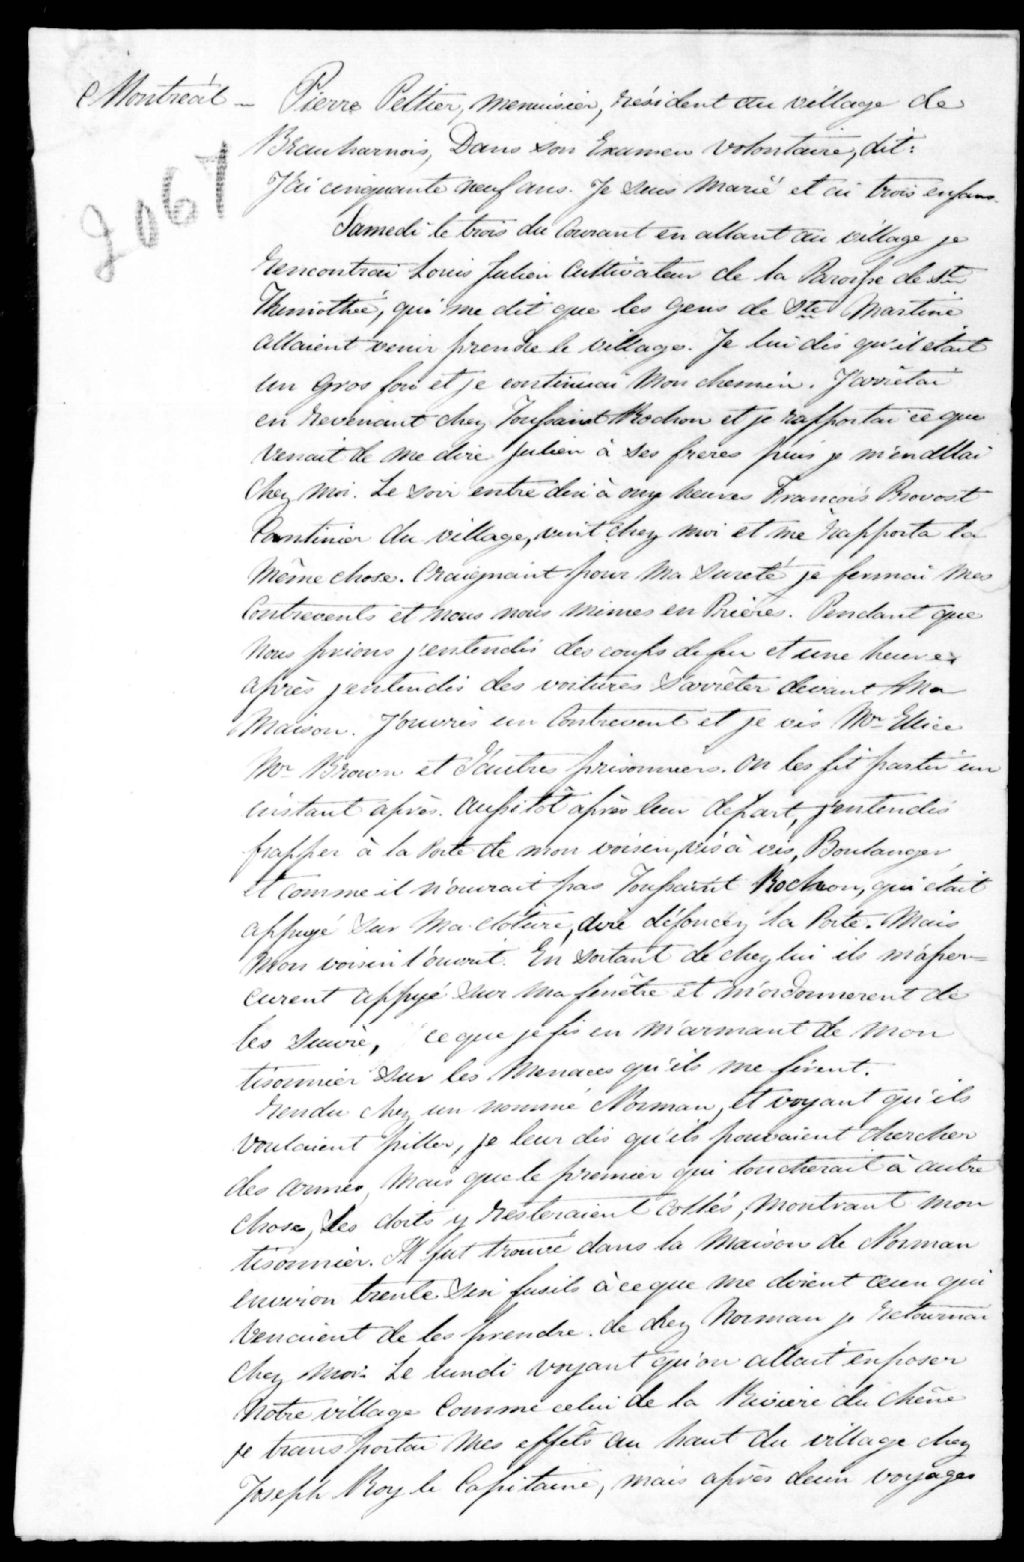 Montréal – Pierre Peltier, menuisier, résident au village de
2067
Beauharnois, Dans son Examen volontaire, dit:
J'ai cinquante neuf ans. Je suis marié et ai trois enfans.
Samedi le trois du Courant en allant au village je
rencontrai Louis Julien Cultivateur de la Paroisse de St
Thimothée, qui me dit que les gens de Ste Martine
allaient venir prendre le village. Je lui dis qu'il était
un gros fou et je continuai mon chemin. J'arrêtai
en revenant chez Toussaint Rochon et je rapportai ce que
venait de me dire Julien à ses freres puis je m'en allai
chez moi. Le soir entre dix à onze heures François Provost
Cantinier du village, vint chez moi et me rapporta la
même chose. Craignant pour ma sureté je fermai mes
Contrevents et nous nous mimes en Prières. Pendant que
nous prions j'entendis des coups de feu et une heure
après j'entendis des voitures s'arrêter devant Ma
Maison. J'ouvris un Contrevent et je vis Mr Ellice
Mr Brown et d'autres prisonniers. On les fit partir un
instant après. Aussitôt après leur départ, j'entendis
frapper à la Porte de mon voisin, vis à vis, Boulanger
et comme il n'ouvrait pas Toussaint Rochon, qui était
appuyé sur ma cloture, dire défoncez la Porte. Mais
mon voisin l'ouvrit. En sortant de chez lui ils m'aper=
curent appyé sur ma fenêtre et m'ordonnerent de
les suivre, ce que je fis en m'armant de mon
tisonnier sur les menaces qu'ils me firent.
Rendu chez un nommé Norman, et voyant qu'ils
voulaient piller, je leur dis qu'ils pouvaient chercher
des armes, mais que le premier qui toucherait à autre
chose, les doits y resteraient collés, montrant mon
tisonnier. Il fut trouvé dans la maison de Norman
environ trente six fusils à ce que me dirent ceux qui
venaient de les prendre. de chez Norman je retournai
chez moi. Le lundi voyant qu'on allait exposer
notre village comme celui de la Riviere du chêne
je transportai mes effêts au haut du village chez
Joseph Roy le Capitaine, mais après deux voyages